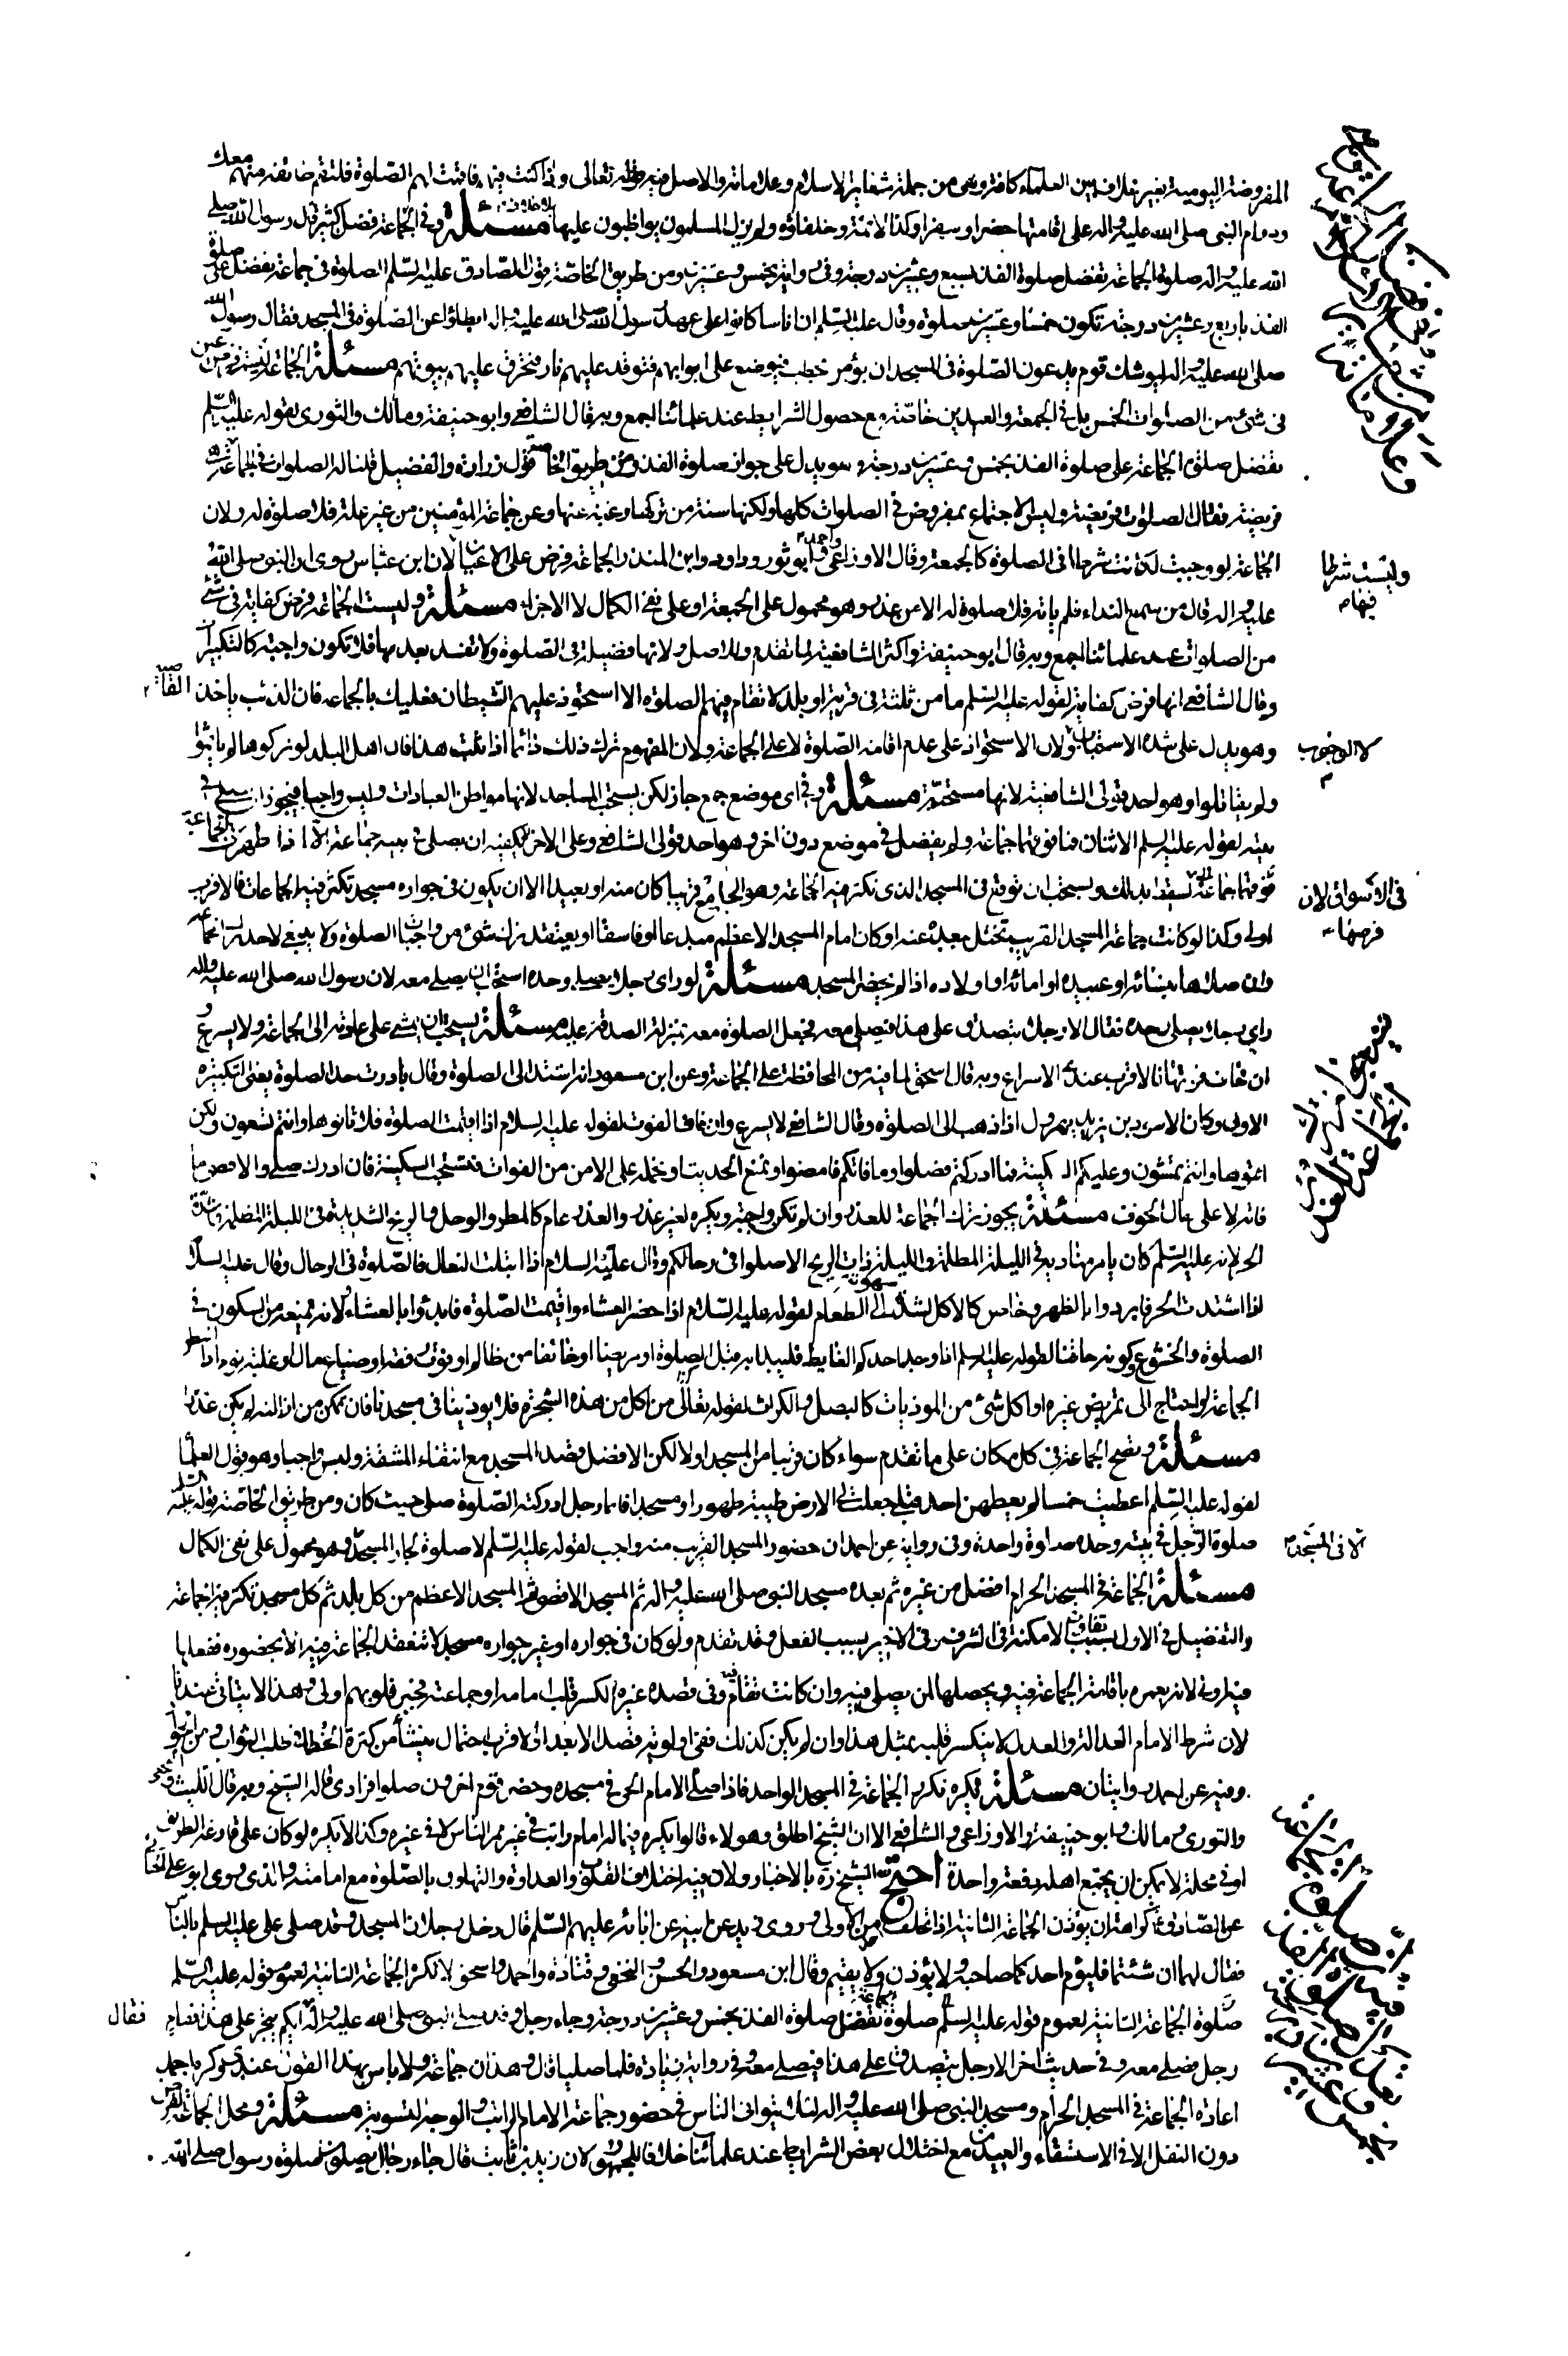 المفروضة اليومية بغير خلاف بين العلماء كافة وهى من جملة شعاير الاسلام وعلاماته والاصل فيه قوله تعالى واذا كنت فيهم فاقمت لهم الصّلوة فلتقم طائفة منهم معك
وداوم النبى صلى الله عليه واله على اقامتها حضرا وسفرا وكذا الائمة وخلفاؤه ولم يزل المسلمون يواظبون عليها بلا خلاف مسئلة وفى الجماعة فضل كثير قال رسول الله صلى
الله عليه واله صلوة الجماعة تفضل صلوة الفذ بسبع وعشرين درجة وفى رواية بخمس وعشرين ومن طريق الخاصّة قول الصادق عليه السّلم الصلوة فى جماعة تفضل على صلوة
الفذ باربع وعشرين درجة تكون خمسا وعشرين صلوة وقال عليه السّلم ان اناسا كانوا على عهد رسول الله صلى الله عليه واله ابطاوا عن الصّلوة فى المسجد فقال رسول الله
صلى الله عليه واله ليوشك قوم يدعون الصّلوة فى المسجد ان يؤمر بحطب فيوضع على ابوابهم فتوقد عليهم نار فتحرق عليهم بيوتهم مسئلة الجماعة ليست فرض عين
فى شئ من الصلوات الخمس بل فى الجمعة والعيدين خاصّة مع حصول الشرايط عند علمائنا اجمع وبه قال الشافعى وابو حنيفة ومالك والثورى لقوله عليه السّلم
تفضل صلوة الجماعة على صلوة الفذ بخمس وعشرين درجة وهو يدل على جواز صلوة الفذ ومن طريق الخاصّة قول زرارة والفضيل قلنا له الصلوات فى الجماعة
فريضة فقال الصلوات فريضة وليس الاجتماع بمفروض فى الصلوات كلها ولكنها سنة من تركها رغبة عنها وعن جماعة المؤمنين من غير علة فلا صلوة له ولان
الجماعة لو وجبت لكانت شرطا فى الصلوة كالجمعة وقال الاوزاعى واحمد وابو ثور وداود وابن المنذر الجماعة فرض على الاعيان لان ابن عباس روى ان النبى صلى الله
وليست شرطا فيها
عليه واله قال من سمع النداء فلم ياته فلا صلوة له الا من عذر وهو محمول على الجمعة او على نفى الكمال لا الاجزاء مسئلة وليست الجماعة فرض كفاية فى شئ
من الصلوات عند علمائنا اجمع وبه قال ابو حنيفة واكثر الشافعية لما تقدم وللاصل ولانها فضيلة فى الصّلوة ولا تفسد بعدمها فلا تكون واجبة كالتكبيرات
وقال الشافعى انها فرض كفاية لقوله عليه السّلم ما من ثلثة فى قرية او بلد لا تقام فيهم الصلوة الا استحوذ عليهم الشيطان فعليك بالجماعة فان الذئب ياخذ القاصية
وهو يدل على شدة الاستحباب لا الوجوب ولان الاستحواذ على عدم اقامة الصّلوة لا على الجماعة ولان المفهوم ترك ذلك دائما اذا ثبت هذا فان اهل البلد لو تركوها لم ياثموا
ولم يقاتلوا وهو احد قولى الشافعية لانها مستحبّة مسئلة وفى اى موضع جمع جاز لكن يستحب المساجد لانها مواطن العبادات وليس واجبا فيجوز ان يصلى فى
بيته لقوله عليه السلم الاثنان فما فوقهما جماعة ولم يفصل فى موضع دون اخر وهو احد قولى الشافعى وعلى الاخر لا يكفيه ان يصلى فى بيته جماعة الا اذا ظهرت الجماعة
فى الاسواق لان فرضها
يسقط بذلك ويستحب ان توقع فى المسجد الذى تكثر فيه الجماعة وهو الجامع قريبا كان منه او بعيدا الا ان يكون فى جواره مسجد تكثر فيه الجماعات فالاقرب
اولى وكذا لو كانت جماعة المسجد القريب تختل ببعده عنه او كان امام المسجد الاعظم مبدعا او فاسقا او يعتقد ترك شئ من واجبات الصلوة ولا ينبغى لاحد ترك الجماعة
وان صلاها بنسائه او عبيده او امائه او اولاده اذا لم يحضر المسجد مسئلة لو راى رجلا يصلى وحده استحب ان يصلى معه لان رسول الله صلى الله عليه واله
راى رجلا يصلى وحده فقال الا رجل يتصدق على هذا فيصلى معه فجعل الصلوة معه بمنزلة الصدقة عليه مسئلة يستحب ان يمشى على عادته الى الجماعة ولا يسرع
ان خاف فوتها فالاقرب عندى الاسراع وبه قال اسحق لما فيه من المحافظة على الجماعة وعن ابن مسعود انه اشتد الى الصلوة وقال بادرت حد الصلوة يعنى التكبيرة
الاولى وكان الاسود بن يزيد يهرول اذا ذهب الى الصلوة وقال الشافعى لا يسرع وان خاف الفوت لقوله عليه السلام اذا اقيمت الصلوة فلا تاتوها وانتم تسعون ولكن
ائتوها وانتم تمشون وعليكم السكينة فما ادركتم فصلوا وما فاتكم فاقضوا ونمنع الحديث او نحمله على الامن من الفوات فتستحب السكينة فان ادرك صلى والا قصد ما
فاته لا على حال الخوف مسئلة يجوز ترك الجماعة للعذر وان لم تكن واجبة ويكره لغير عذر والعذر عام كالمطر والوحل والريح الشديدة فى الليلة المظلمة وشدّة
الحر لانه عليه السّلم كان يامر مناديه فى الليلة المطلة والليلة ذات الريح الا صلوا فى رحالكم وقال عليه السلام اذا ابتلت النعال فالصّلوة فى الرحال وقال عليه السلام
اذا اشتد الحر فابردوا بالظهر وخاص كالاكل لشدّة شهوته الى الطعام لقوله عليه السّلام اذا حضر العشاء واقيمت الصّلوة فابدؤا بالعشاء ولانه يمنعه من السكون فى
الصلوة والخشوع وكونه حاقنا لقوله عليه السلم اذا وجد احدكم الغايط فليبدا به قبل الصلوة او مريضا او خائفا من ظالم او فوت رفقة او ضياع مال او غلبة نوم
الجماعة او احتاج الى تمريض غيره او اكل شئ من الموذيات كالبصل والكراث لقوله تعالى من اكل من هذه الشجرة فلا يوذينا فى مسجدنا فان تمكن من ازالته لم يكن عذرا
مسئلة وتصح الجماعة فى كل مكان على ما تقدم سواء كان قريبا من المسجد اولا لكن الافضل قصد المسجد مع انتفاء المشقة وليس واجبا وهو قول العلماء
لقوله عليه السّلم اعطيت خمسا لم يعطهن احد قبلى جعلت لى الارض طيبة طهورا ومسجدا فايما رجل ادركته الصّلوة صلى حيث كان ومن طريق الخاصّة قوله عليه السّلم
صلوة الرّجل فى بيته وحده صلوة واحدة وفى رواية عن احمد ان حضور المسجد القريب منه واجب لقوله عليه السّلم لا صلوة لجار المسجد الا فى المسجد وهو محمول على نفى الكمال
مسئلة الجماعة فى المسجد الحرام افضل من غيره ثم بعده مسجد النبى صلى الله عليه واله ثم المسجد الاقصى ثم المسجد الاعظم من كل بلد ثم كل مسجد تكثر فيه الجماعة
والتفضيل فى الاول بسبب تفاوت الامكنة فى الشرف وفى الاخير بسبب الفعل وقد تقدم ولو كان فى جواره او غير جواره مسجد لا تنعقد الجماعة فيه الا بحضوره ففعلها
فيه اولى لانه يعمره باقامة الجماعة فيه ويحصلها لمن يصلى فيه وان كانت تقام فيه وفى قصده غيره كسر قلب امامه او جماعته فجبر قلوبهم اولى وهذا لا يتاتى عندنا
لان شرط الامام العدالة والعدل لا ينكسر قلبه بمثل هذا وان لم يكن كذلك ففى اولوية قصد الابعد او الاقرب احتمال ينشا من كثرة الخطا فى طلب الثواب
وفيه عن احمد روايتان مسئلة ويكره تكرير الجماعة فى المسجد الواحد فاذا صلى الامام الحى فى مسجده وحضر قوم اخرون صلوا فرادى قاله الشيخ وبه قال الليث
والثورى ومالك وابو حنيفة والاوزاعى والشافعى الا ان الشيخ اطلق وهولاء قالوا يكره فيما له امام راتب فى غير ممر الناس لا فى غيره وكذا لا يكره لو كان على قارعة الطريق
او فى محلة لا يمكن ان يجتمع اهله دفعة واحدة احتج الشيخ ره بالاخبار ولان فيه اختلاف القلوب والعداوة والتهاون بالصّلوة مع امامه والذى روى ابو على
عن الصّادق كراهة ان يؤذن الجماعة الثانية اذا تخلف احد من الاولى وروى زيد عن ابيه عن ابائه عليهم السّلم قال دخل رجلان المسجد وقد صلى على عليه السلم بالناس
فقال لهما ان شئتما فليؤم احدكما صاحبه ولا يؤذن ولا يقيم وقال ابن مسعود والحسن والنخعى وقتادة واحمد واسحق لا تكره الجماعة الثانية لعموم قوله عليه السّلم
صلوة الجماعة الثانية لعموم قوله عليه السلم صلوة الجماعة تفضل صلوة الفذ بخمس وعشرين درجة وجاء رجل وقد صلى النبى صلى الله عليه واله فقال ايكم يتجر على هذا فقام
رجل فصلى معه وفى حديث اخر الا رجل يتصدق على هذا فيصلى معه وفى رواية بزيادة فلما صليا قال وهذان جماعة ولا باس بهذا القول عندى وكره احمد
اعادة الجماعة فى المسجد الحرام ومسجد النبى صلى الله عليه واله لئلا يتوانى الناس فى حضور جماعة الامام الراتب والوجه التسوية مسئلة ومحل الجماعة الفرض
دون النفل الا فى الاستسقاء والعيدين مع اختلال بعض الشرايط عند علمائنا خلافا للجمهور لان زيد بن ثابت قال جاء رجال يصلون بصلوة رسول صلى الله